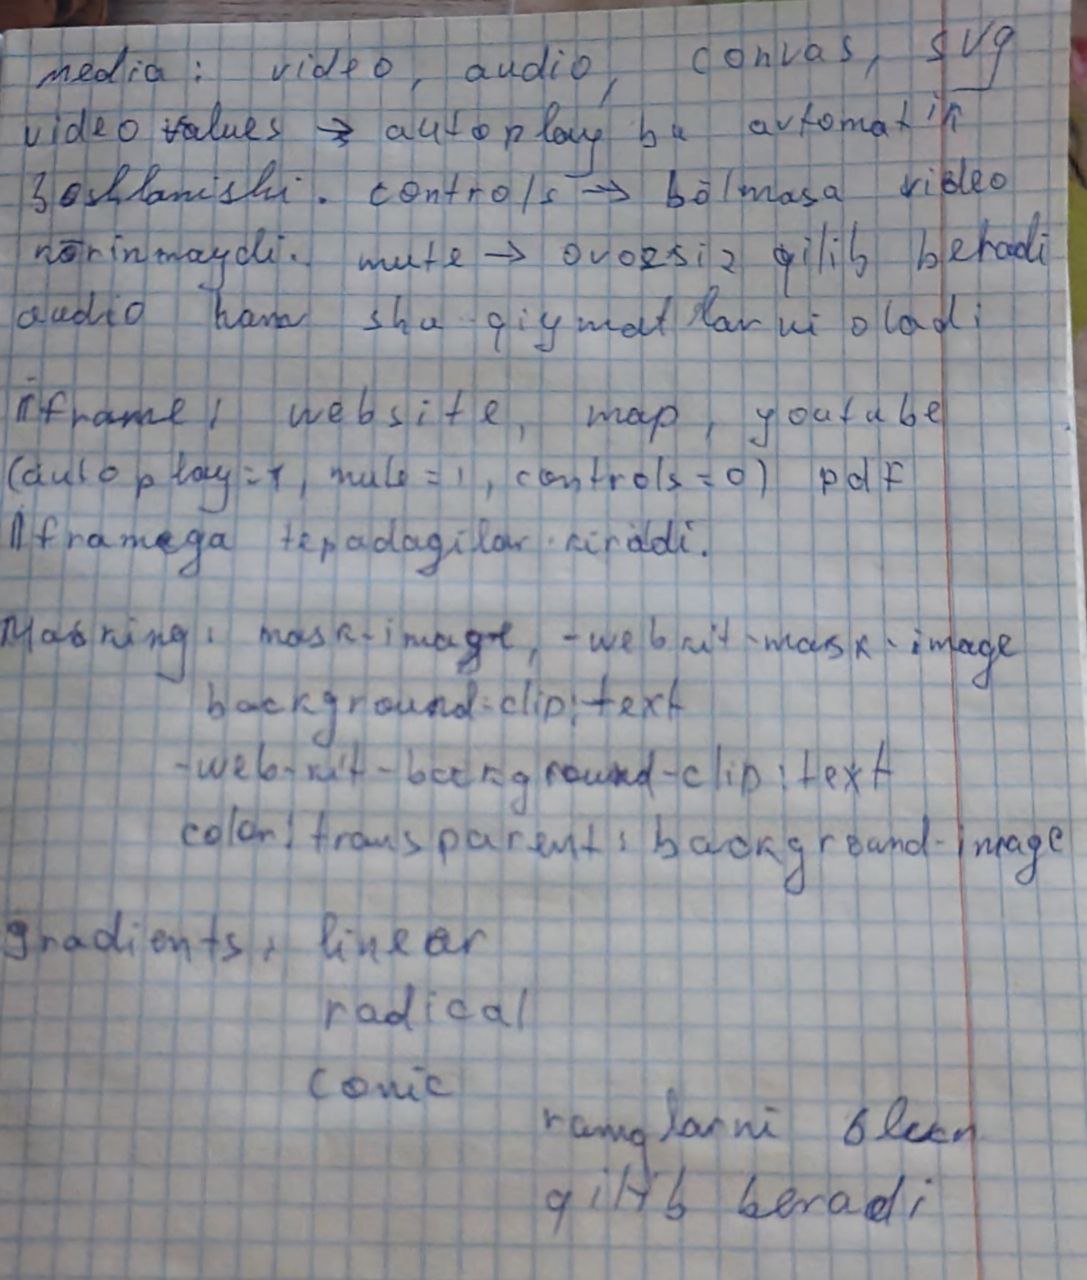 media: video, audio, convas, svg
video values → autoplay bu avtomatik
boshlanishi. controls → bo'lmasa video
ko'rinmaydi. mute → ovozsiz qilib beradi
audio ham shu qiymatlarni oladi
iframe: website, map, youtube
(autoplay=1, mute=1, controls=0) pdf
iframega tepadagilar kiradi.
Masking: mask-image, -webkit-mask-image
background-clip:text
-web-kit-background-clip:text
color:transparent: background-image
gradients: linear
radical
conic
ranglarni
qilib beradi